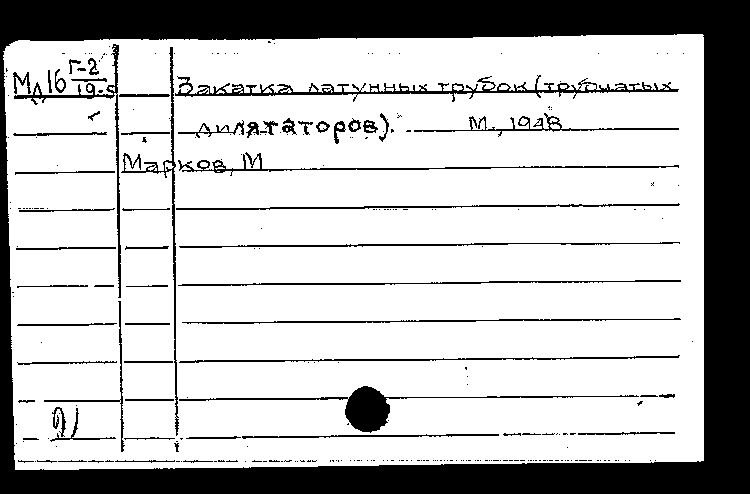 Мд16 Г-2 Закатка латунных трубок (трубчатых
19-5
дилятаторов). М., 1948
Марков, М